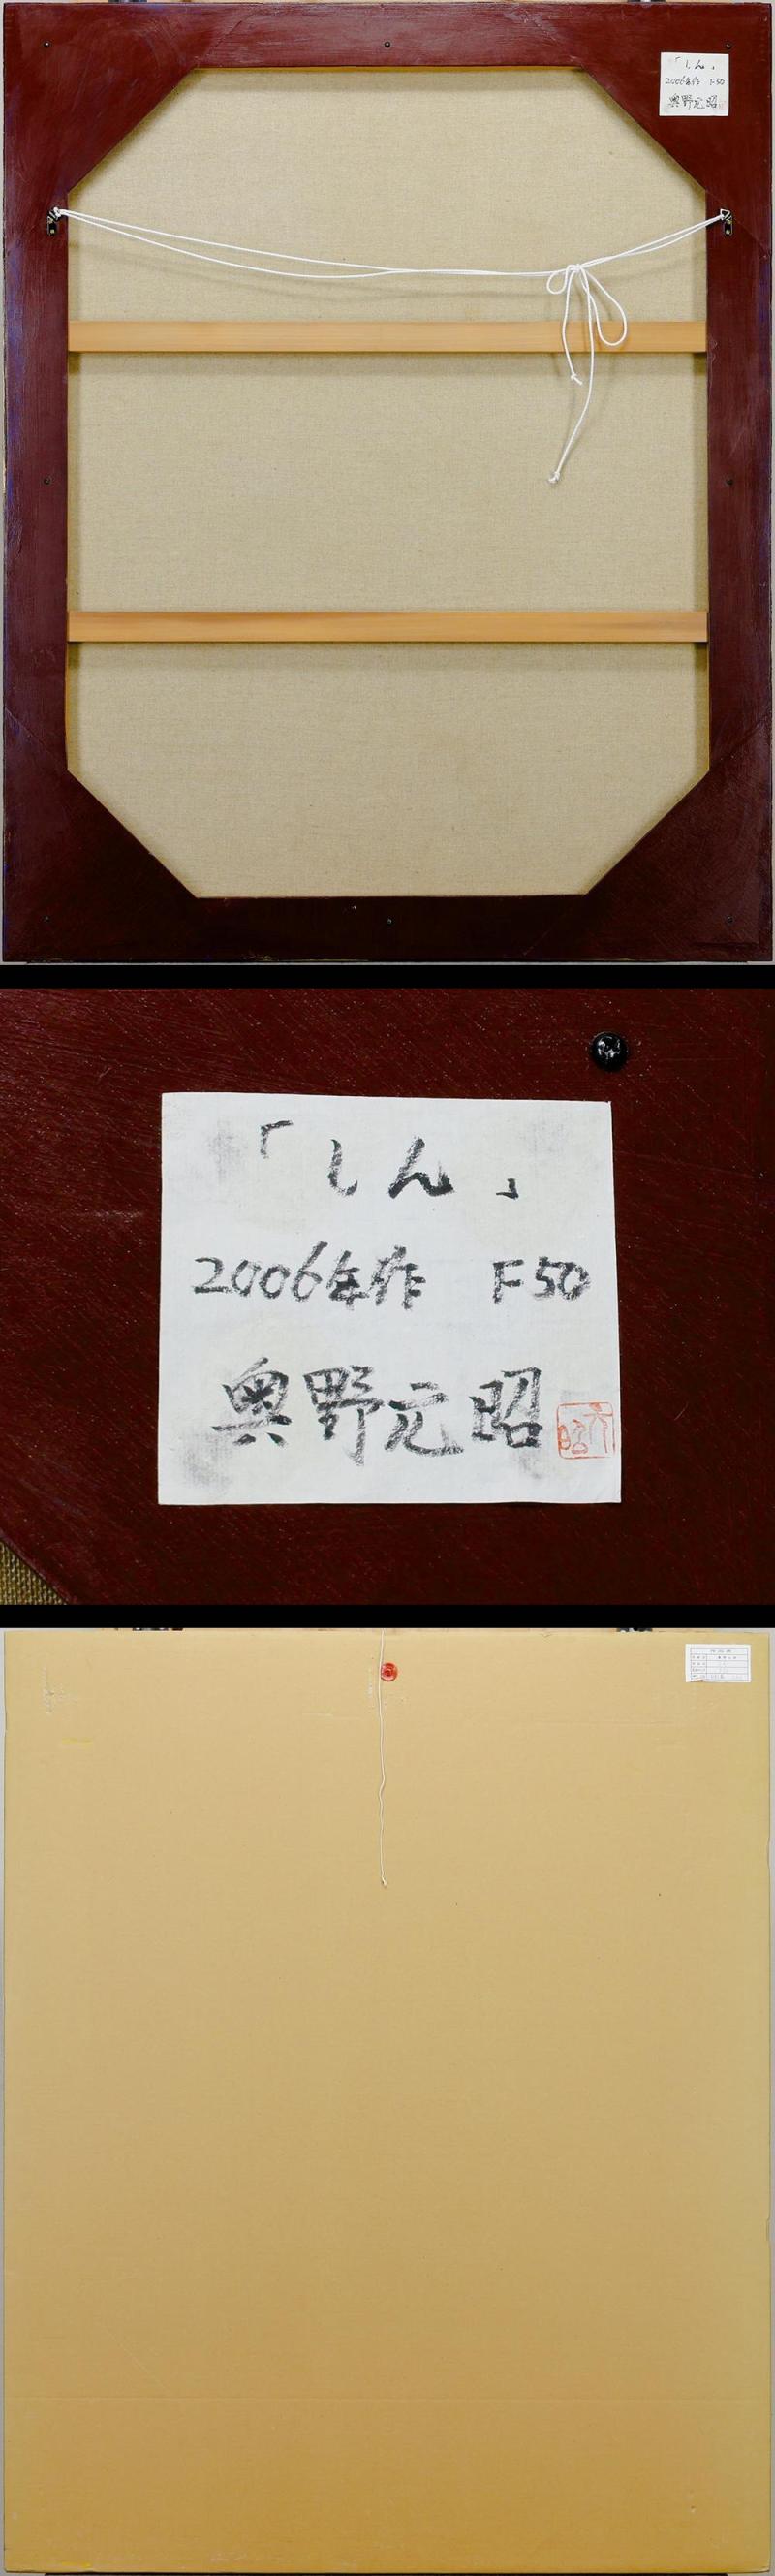 「しん」
2006年作 F50
奥野元昭
「しん」
2006年作 F50
奥野元昭
元昭